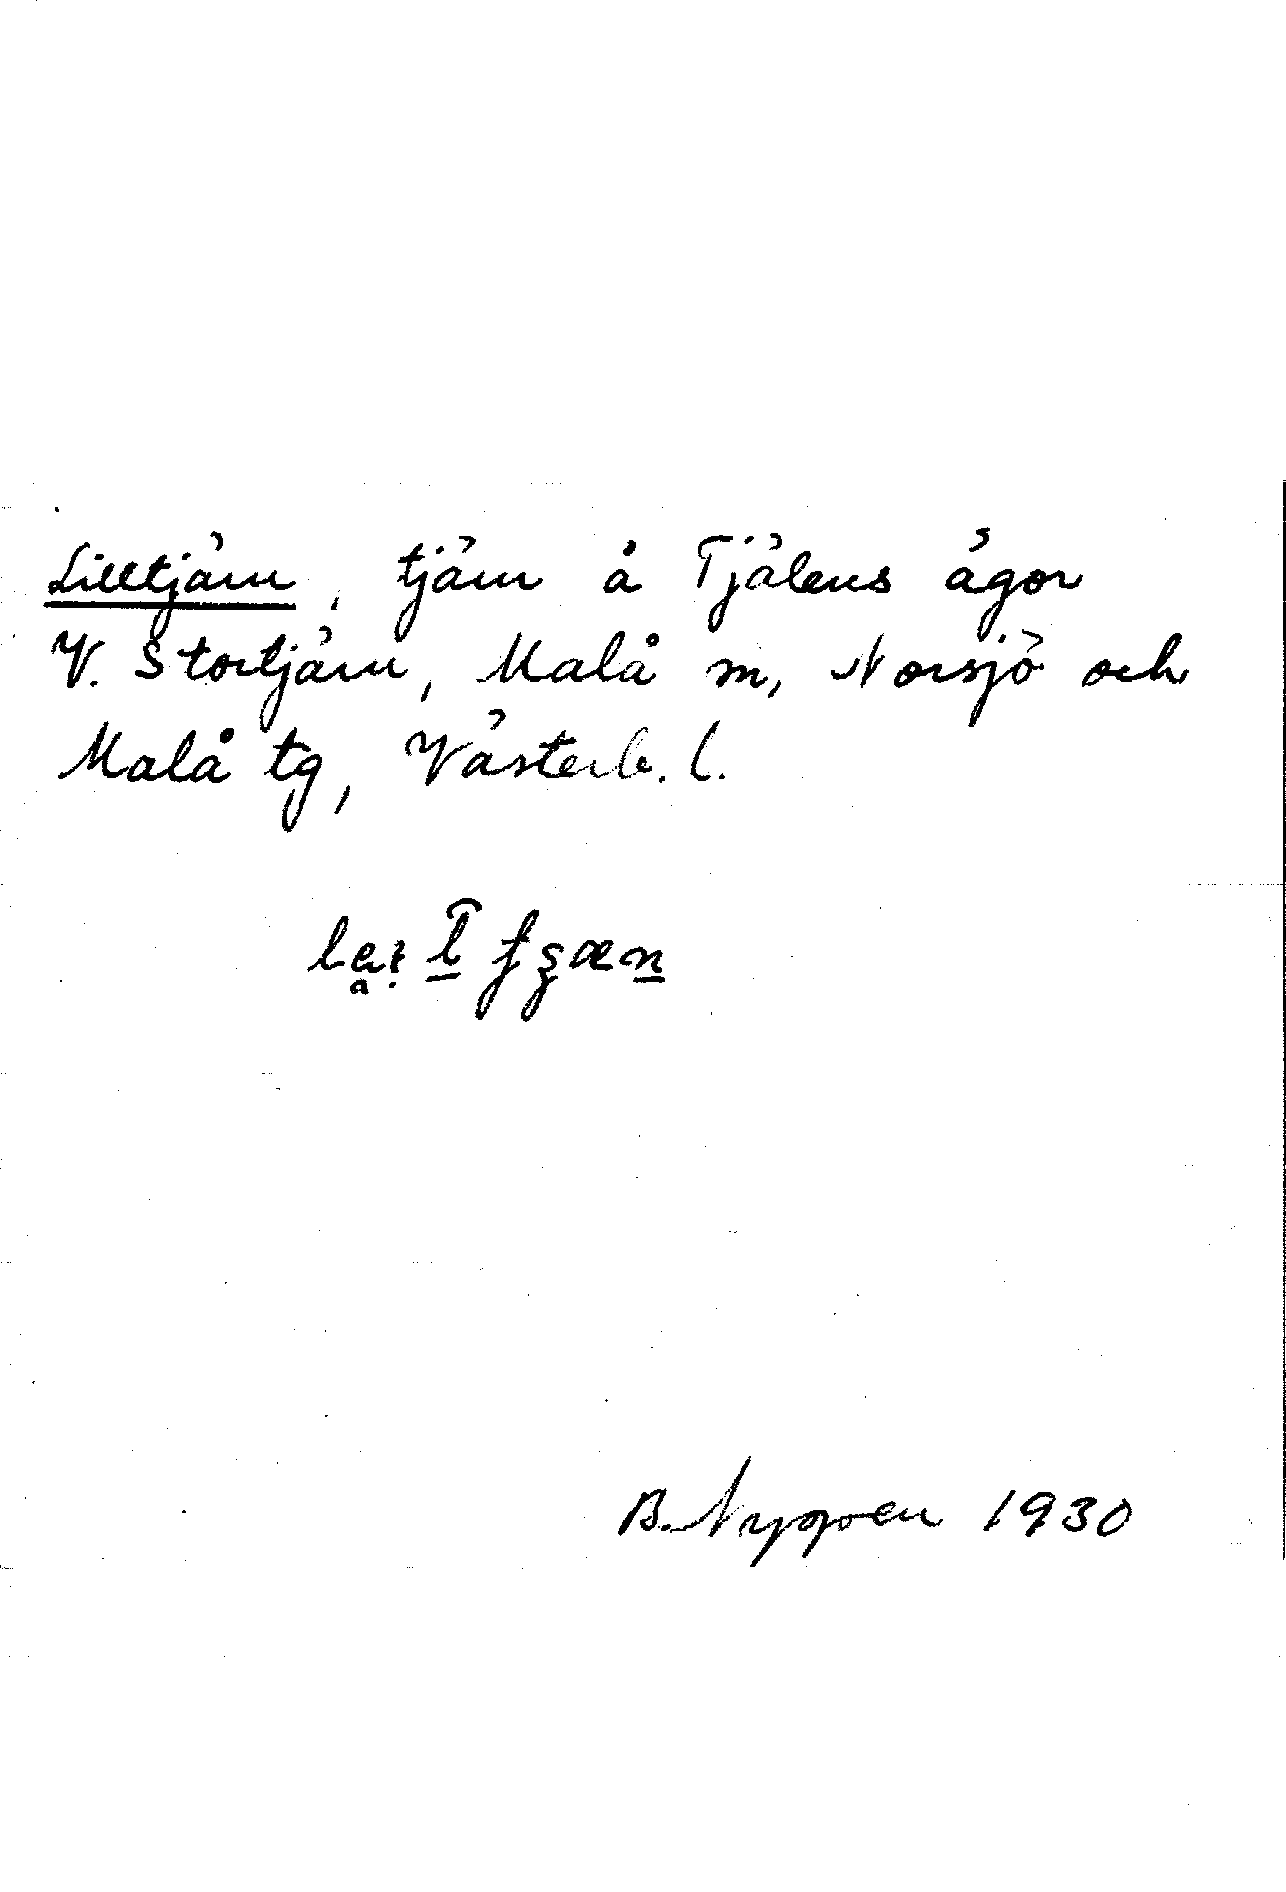 Lilltjärn, tjärn å Tjälens ägor
V. Stortjärn, Malå sn, Norsjö och
Malå tg, Västerb. l.
B. Nygren 1930